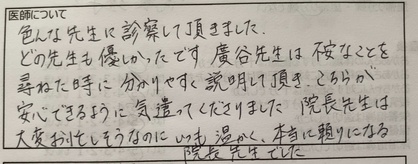 医師について
色んな先生に診察して頂きました.
どの先生も優しかったです 廣谷先生は 不安なことを
尋ねた時に 分かりやすく 説明して頂き、こちらが
安心できるように 気遣ってくださりました 院長先生は
大変お忙しそうなのに いつも 温かく、本当に頼りになる
院長先生でした